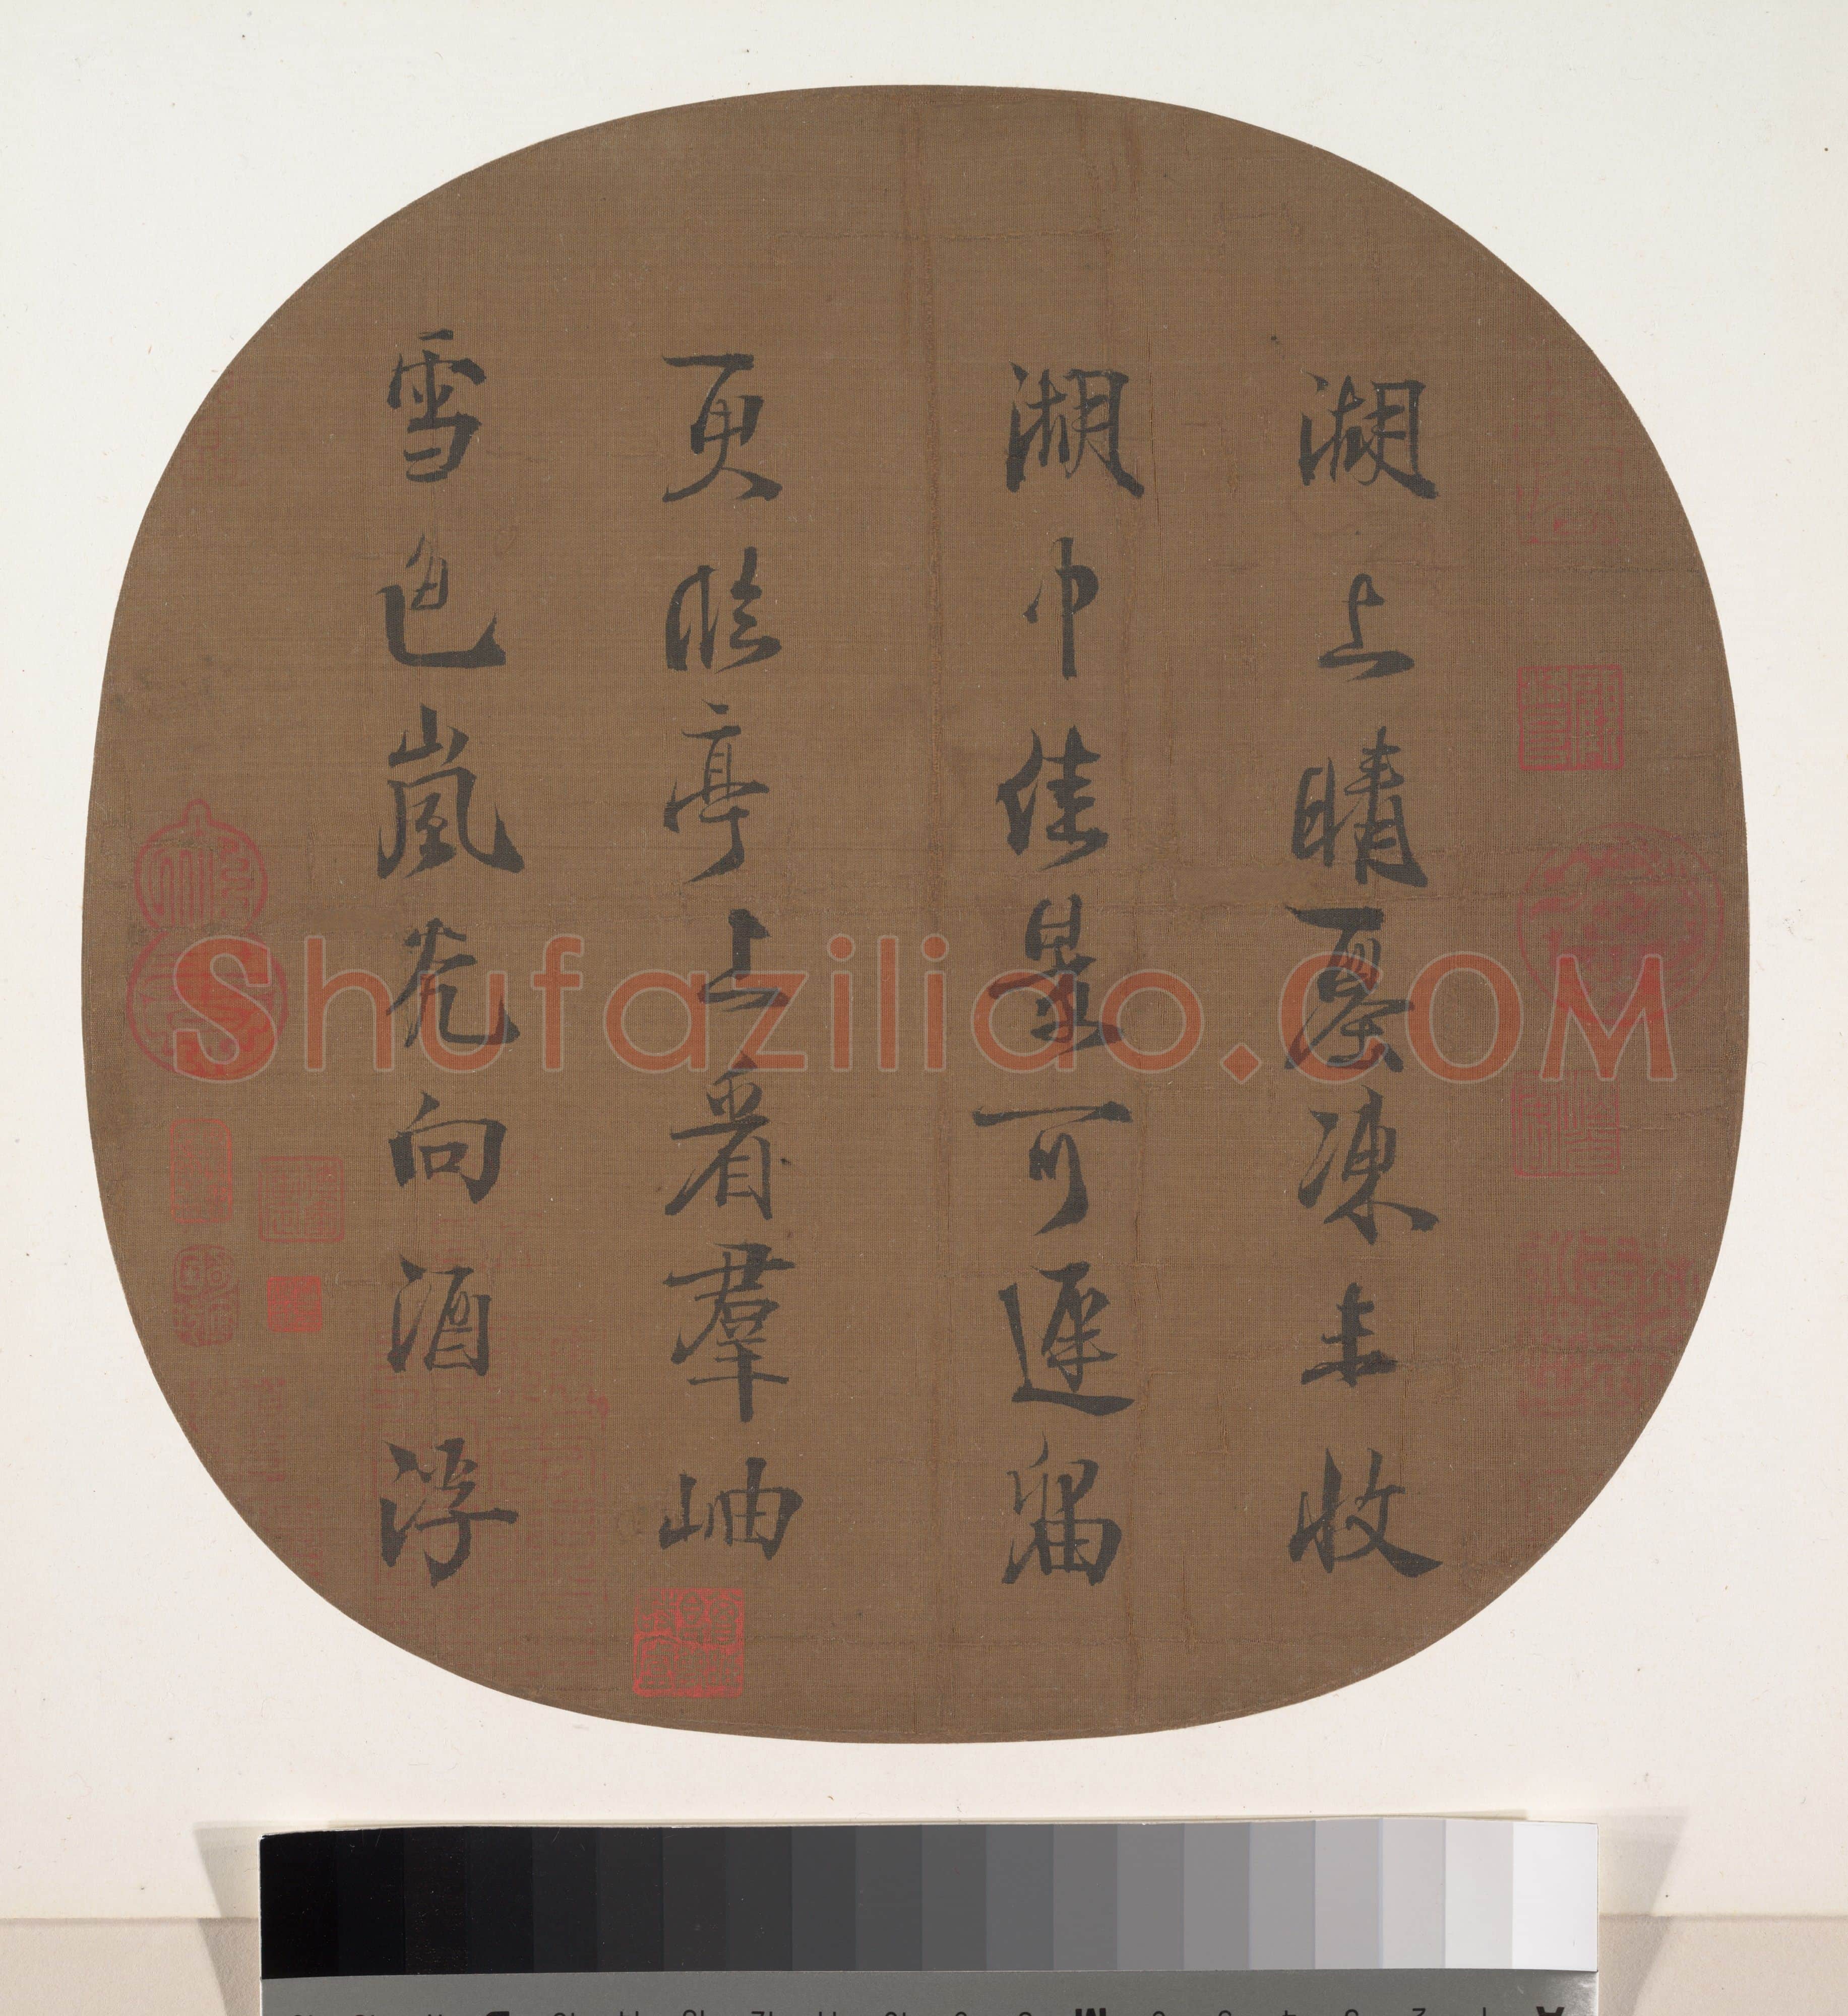 湖上晴寒凍未收
湖中佳景可遲留
更臨亭上看羣岫
雪色嵐光向酒浮
Shufaziliao.COM